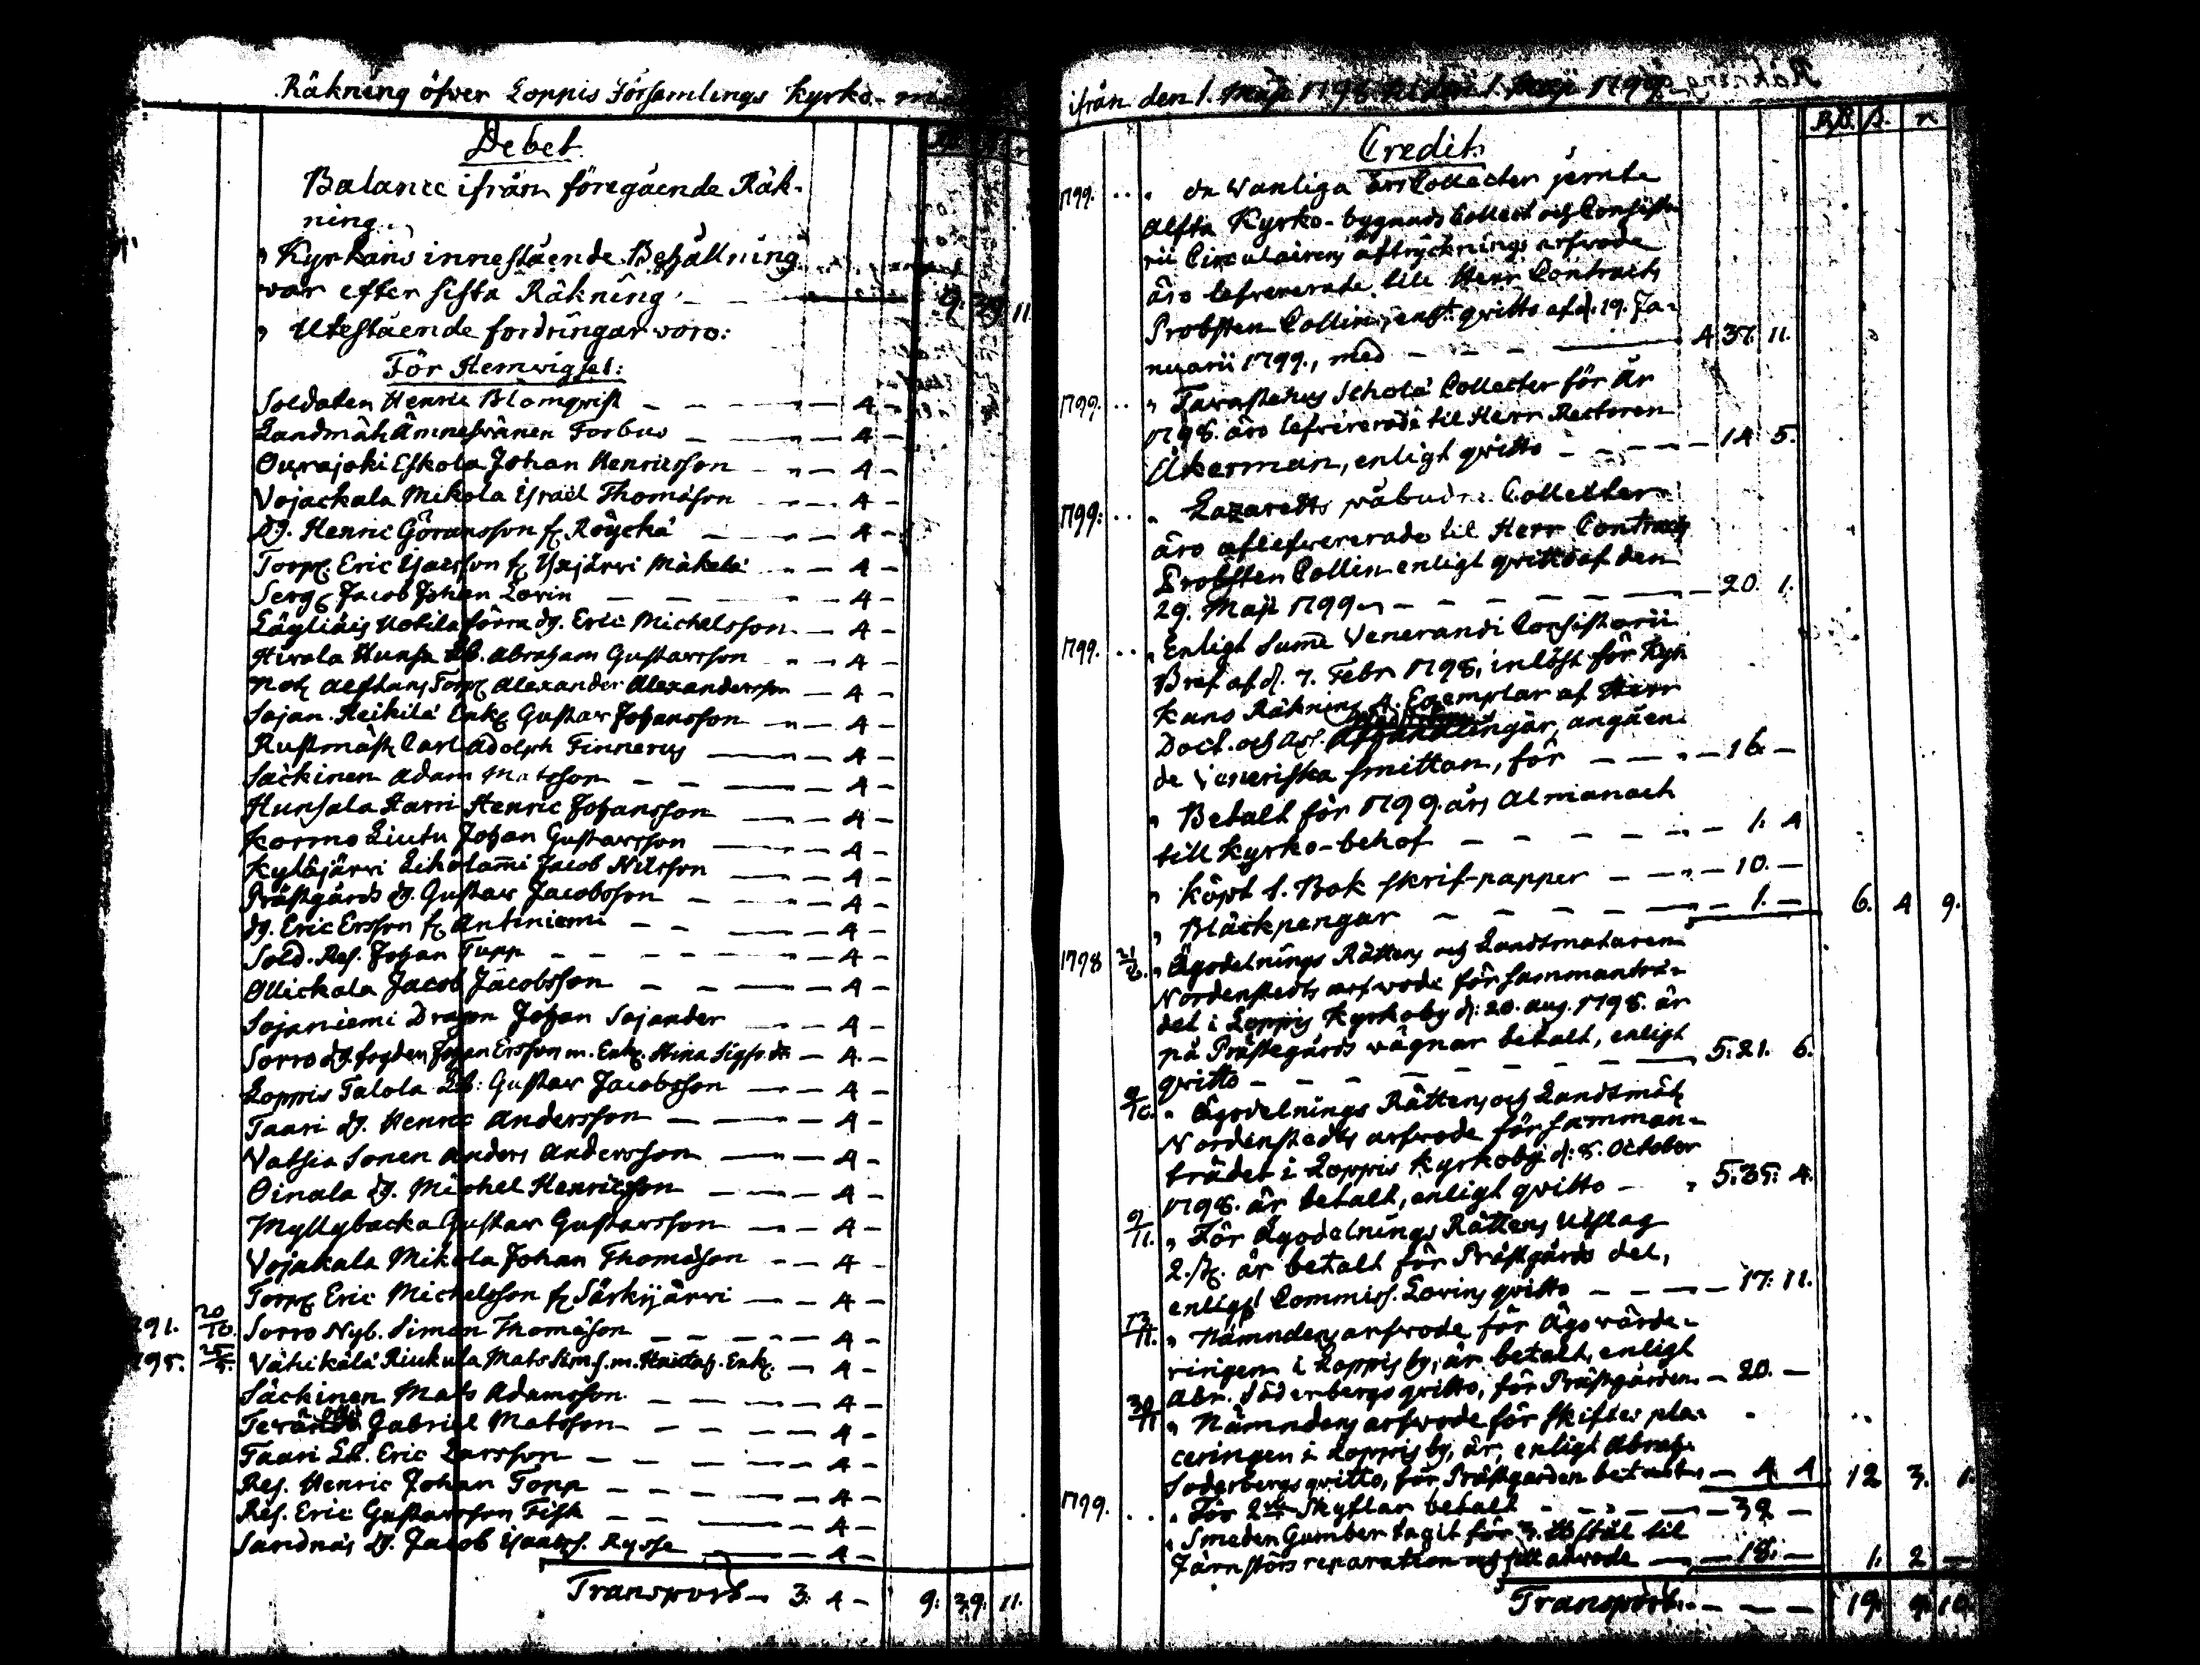 Räkning öfver Loppis Församlings Kyrko-
Debet
Balance ifrån föregående Räk-
ning.
" Kyrkans innestående Behållning
var efter sista Räkning - - 9. 39 11
" Utestående fordringar voro:
För Hemvigsel:
Soldaten Henric Blomqvist - - - 4 -
Landmäh Ämnesvänen Forbus - - - 4 -
Ourajoki Eskola Johan Henricsson - - - 4 -
Vojackala Mikola Israël Thomasson - - 4 -
dg. Henric Göransson fr Röyckä - - - 4 -
Torp. Eric Isacsson fr Yxjärvi Mäkelä - - 4 -
Serg. Jacob Johan Lorin - - - - 4 -
Läyliäis Uotila förra dg. Eric Michelsson - - 4 -
Hirvola Hunsa Lb. Abraham Gustavsson - - 4 -
Torp Alexander Alexandersson - 4 -
Sajan. Heikilä Enk. Gustav Johansson - - 4 -
Rustmäst Carl Adolph Finnerus - - 4 -
Säckinen Adam Matsson - - - 4 -
Hunsala Harri Henric Johansson - - 4 -
Kormo Liutu Johan Gustavsson - - 4 -
Kyläjärvi Liholammi Jacob Nilsson - - 4 -
Prästgårds dg. Gustav Jacobsson - - - 4 -
dg. Eric Ersson fr Antiniemi - - - 4 -
Sold. Res. Johan Tupp - - - - 4 -
Ollickala Jacob Jacobsson - - - 4 -
Sajaniemi Dragon Johan Sajander - - 4 -
Sorro dg. fogden Johan Ersson m. Enk. Stina Sigfr. dr - 4 -
Loppis Talola Lb: Gustav Jacobsson - - 4 -
Taari dg. Henric Andersson - - - 4 -
Vatsia Sonen Anders Andersson - - 4 -
Oinala dg. Michel Henricsson - - 4 -
Myllybacka Gustav Gustavsson - - 4 -
Vojakala Mikola Johan Thomasson - - 4 -
Torp. Eric Michelsson fr Särkijärvi - - 4 -
91. 20/10. Sorro Nyb. Simon Thomasson - - - 4 -
95. 25/5. Vähikälä Riukula Mats Sims. m. Enk. - 4 -
Säckinen Mats Adamsson - - - 4 -
Gabriel Matsson - - - 4 -
Taari Lb. Eric Larsson - - - - 4 -
Res. Henric Johan Topp - - - - 4 -
Res. Eric Gustavsson Fisk - - - 4 -
Sandnäs dg. Jacob Isaacs. Rysse - - 4 -
Transport - 3. 4 - 9. 39. 11.
ifrån den 1. Maji 1798 til den 1. Maji 1799.
Credit. Rd. s. r
1799. .. " De vanliga årsCollecter jemte
Alfta Kyrko-bygnads Collect och Consisto
rii Circulairens aftrycknings arfvode
äro lefvererade till Herr Contracts
Probsten Collin, enl. qvitto af d. 19. Ja-
nuarii 1799., med - - - 4 37. 11.
1799. .. " Tavastehus Schola Collecter för År
1798. äro lefvererade til Herr Rectoren
Åkerman, enligt qvitto - - - - 14 5.
1799: .. " Lazaretts påbudne Collecter
äro aflefvererade til Herr Contracts
Probsten Collin enligt qvitto af den
29. Maji 1799 - - - - - - 20. 1.
1799. .. " Enligt Summe Venerandi Consistorii
Bref af d. 7. Febr 1798, inlöst för Kyr
kans Räkning 4. Exemplar af Herr
Doct. och Ass. angåen-
de Veneriska smittan, för - - - - 16 -
" Betalt för 1799 års Almanach
till Kyrko-behof - - - - - - 1. 4
" Köpt 1. Bok skrif-papper - - - 10. -
" Bläckpengar - - - - - - 1. - 6. 4 9.
1798 21/8. " Ägodelnings Rättens och Landtmätaren
Nordenstedts arfvode för sammanträ-
det i Loppis Kyrkoby d: 20. Aug. 1798. är
på Prästegårds vägnar betalt, enligt
qvitto - - - - - - - 5. 21. 6.
9/10. " Ägodelnings Rättens och Landtmät
Nordenstedts arfvode för samman-
trädet i Loppis Kyrkoby d: 8. October
1798. är betalt, enligt qvitto - " 5. 35. 4.
9/11. " För Ägodelnings Rättens Utslag
2. st. är betalt för Prästgårds del,
enligt Commiss. Lorins qvitto - - - - 17. 11.
13/11. " Nämndens arfvode för Ägovärde-
ringen i Loppis by, är betalt, enligt
Abr. Söderbergs qvitto, för Prästgården - 20. -
30/11 " Nämndens arfvode för skiftes pla-
ceringen i Loppis by, är, enligt Abrah.
Söderbergs qvitto, för Prästgården betalt - 4 4 12 3. 1.
1799. .. " För 2. Skyflar betalt - - - - - 32 -
" Smeden Gumber tagit för 3. stål til
Järnstörs reparation och sitt arvode - - 18. - 1. 2 -
Transport - - - - 19. 9. 10.